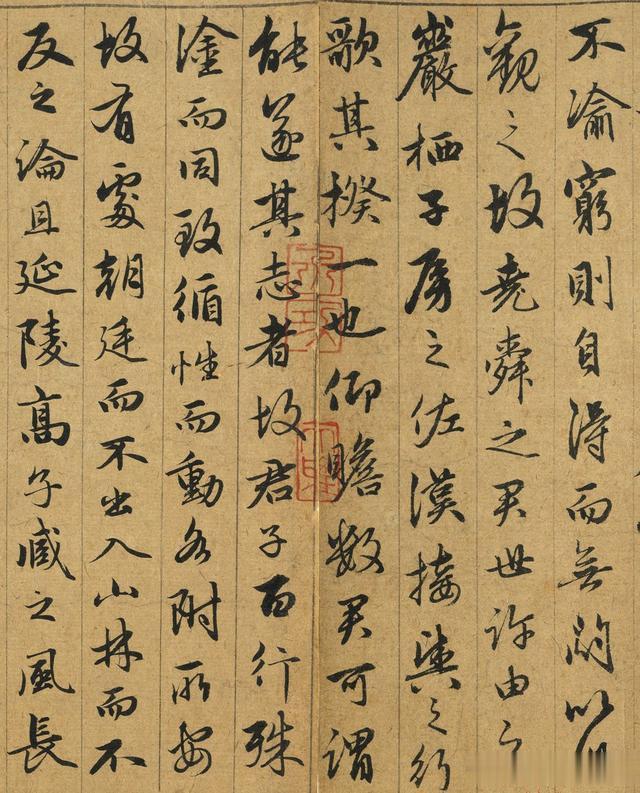 不渝窮則自得而無悶以此
觀之故堯舜之君世許由之
巖栖子房之佐漢接輿之行
歌其揆一也仰瞻數君可謂
能遂其志者故君子百行殊
塗而同致循性而動各附所安
故有處朝廷而不出入山林而不
反之論且延陵高子臧之風長